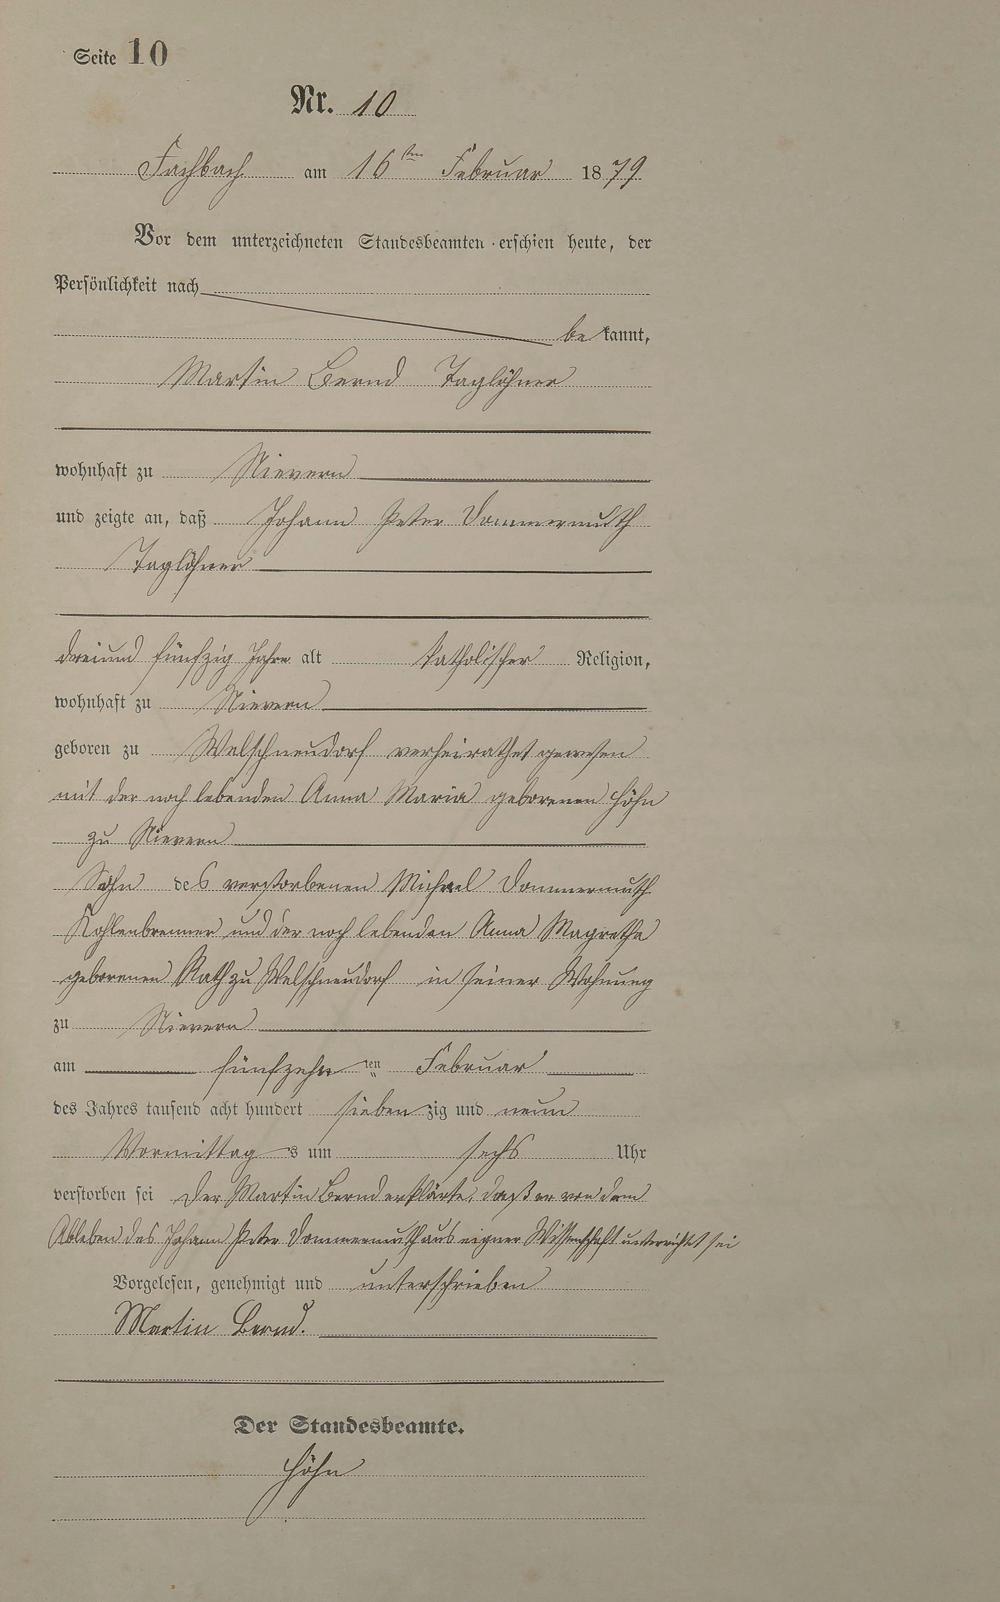 Seite 10
Nr. 10
Fachbach am 16ten Februar 1879
Vor dem unterzeichneten Standesbeamten erschien heute, der
Persönlichkeit nach
be kannt,
Martin Bernd Taglöhner
wohnhaft zu Nievern
und zeigte an, daß Johann Peter Dommermuth
Taglöhner
dreiund fünfzig Jahre alt katholischer Religion,
wohnhaft zu Nievern
geboren zu Welschneudorf verheirathet gewesen
mit der noch lebenden Anna Maria geborenen Höhn
zu Nievern
Sohn des verstorbenen Michael Dommermuth
Kohlenbrenner und der noch lebenden Anna Magretha
geborenen Rath zu Welschneudorf in seiner Wohnung
zu Nievern
am fünfzehn ten Februar
des Jahres tausend acht hundert siebenzig und neun
Vormittag s um sechs Uhr
verstorben sei Der Martin Bernd erklärte, daß er von dem
Ableben des Johann Peter Dommermuth aus eigner Wissenschaft unterrichtet sei
Vorgelesen, genehmigt und unterschrieben
Martin Bernd.
Der Standesbeamte.
Höhn